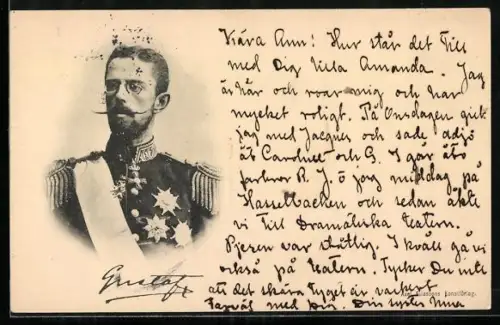 Kära Ann! Hur står det Till
med Dig lilla Amanda. Jag
är här och roar mig och har
mycket roligt. På Onsdagen gick
jag med Jacques och sade adjö
åt och G. I går åto
farbror R. J. o jag middag på
Hasselbacken och sedan åkte
vi Till Dramatiska Teatern.
Pjesen var ståtlig. I kväll gå vi
också på Teatern. Tycker Du inte
att det skära Tyget är vackert
Farväl med Dig. Din syster Nina
Gustaf
Konstförlag.